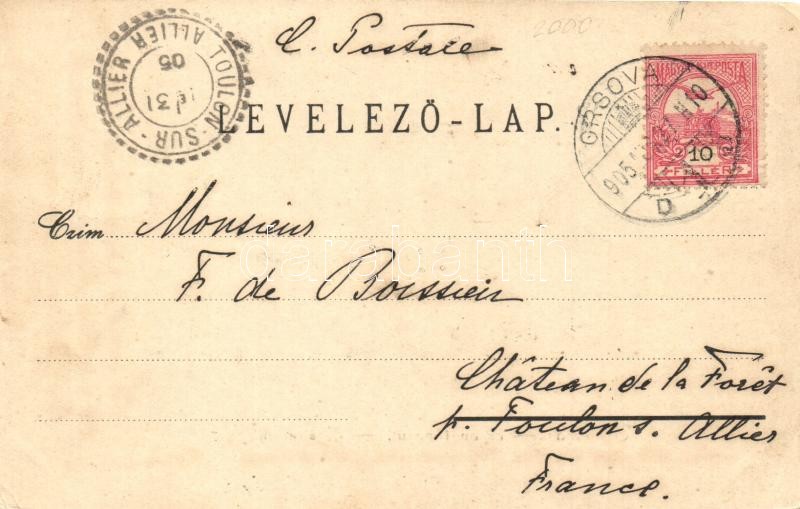 C. Postare
2000.
LEVELEZŐ-LAP.
TOULON-SUR-ALLIER ALLIER
31
05
MAGYAR KIR. POSTA
10
FILLÉR
ORSOVA
905
D
Czim Monsieur
F. de Boissieu
Château de la Forêt
p. Toulon s. Allier
France.
darabanth